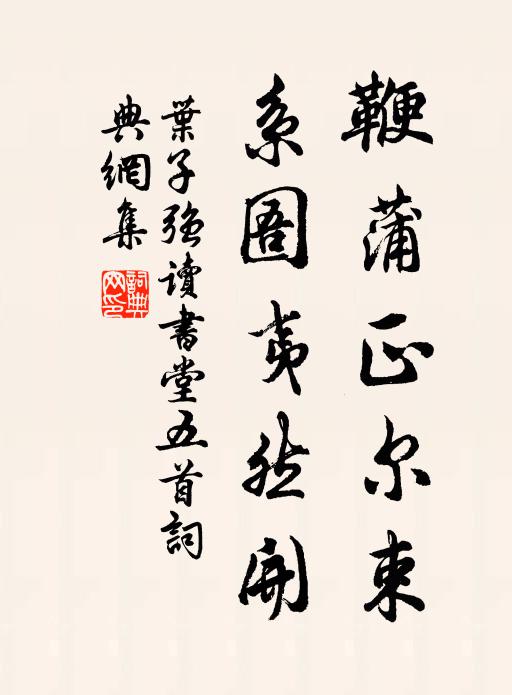 鞭蒲正尔束
系圄夷然開
葉子強讀書堂五首詞
典網集
詞典網印